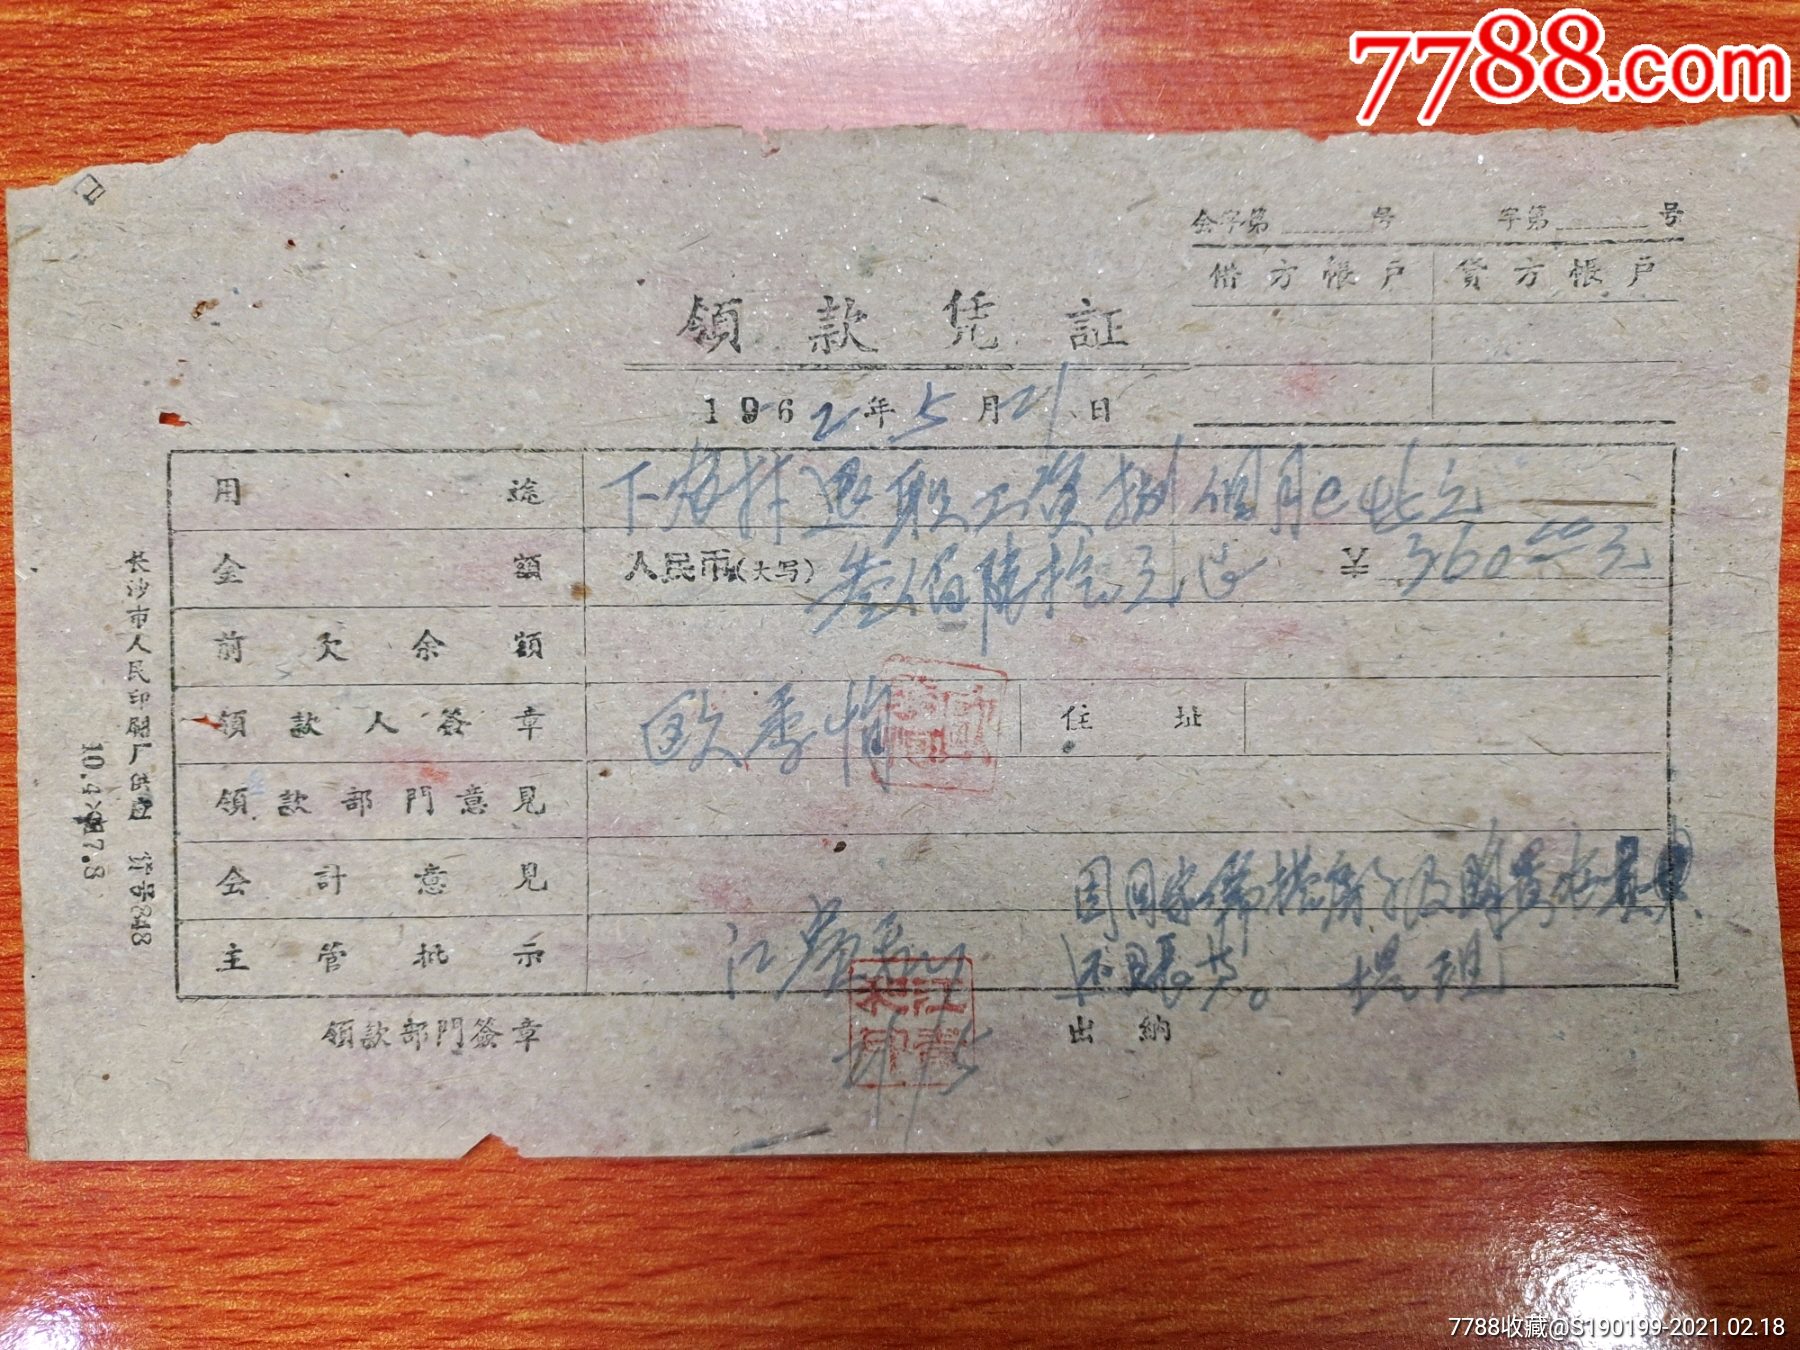 7788.com
会字第 号 字第 号
借方帐户 貸方帐户
領款凭証
1962年5月21日
用途 下放 退职工资捌個月@45元
金額 人民币(大写) 叁佰陆拾元正 ¥360.00元
前欠余額
領款人簽章 欧季 住址
領款部門意見
会計意見 因回家 房子及購置
主管批示 江 还賬
領款部門簽章 出納
长沙市人民印刷厂供应 貨号848
7788收藏@S190199-2021.02.18